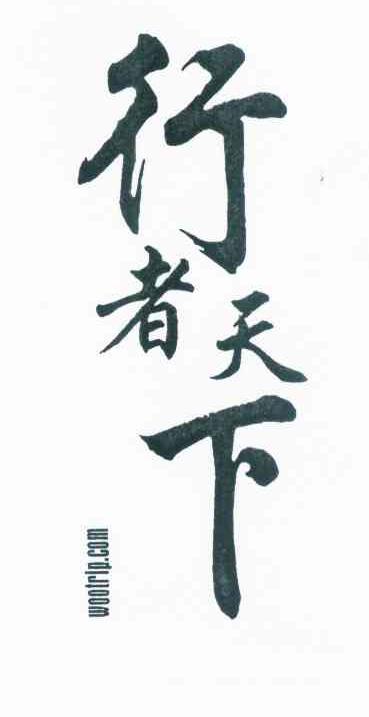 行者天下
wootrip.com